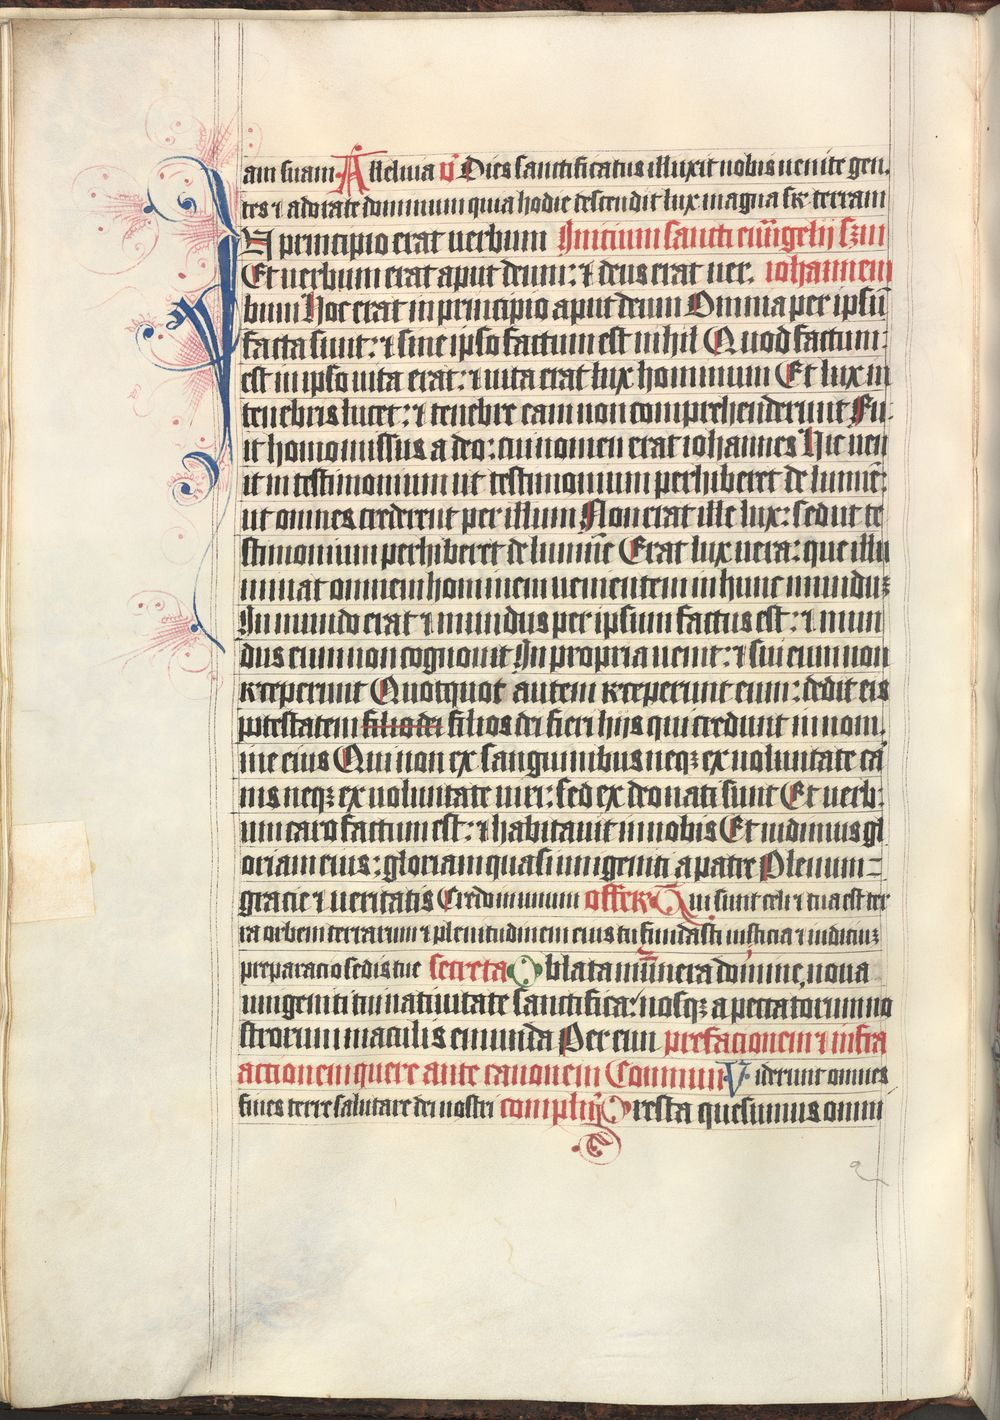 am suam Alleluia v̄ Dies sanctificatus illuxit nobis uenite gen,
tes ⁊ adorate dominum quia hodie descendit lux magna sr̄ terram
IN principio erat uerbum Inicium sancti ewāgelij sc̄dm
Et uerbum erat aput deum: ⁊ deus erat uer, iohannem
bum Hoc erat in principio aput deum Omnia per ipsū
facta sunt: ⁊ sine ipso factum est nihil Quod factum:
est in ipso uita erat: ⁊ uita erat lux hominum Et lux in
tenebris lucet: ⁊ tenebre eam non comprehenderunt Fu:
it homo missus a deo: cui nomen erat iohannes Hic uen
it in testimonium ut testimonium perhiberet de lumīe:
ut omnes crederent per illum Non erat ille lux: sed ut te
stimonium perhiberet de lumīe Erat lux uera: que illu
minat omnem hominem uenientem in hunc mundūꝫ
In mundo erat ⁊ mundus per ipsum factus est: ⁊ mun
dus eum non cognouit In propria uenit: ⁊ sui eum non
receperunt Quotquot autem receperunt eum: dedit eis
potestatem filio dei filios dei fieri hijs qui credunt in nom,
ine eius Qui non ex sanguinibus neqꝫ ex uoluntate ca
nis neqꝫ ex uoluntate uiri: sed ex deo nati sunt Et uerb:
um caro factum est: ⁊ habitauit in nobis Et uidimus gl
oriam eius: gloriam quasi unigeniti a patre Plenum=
gracie ⁊ ueritatis Credo in unum offer̄ Tui sunt celi ⁊ tua est ter
ra orbem terrarum ⁊ plenitudinem eius tu fundasti iusticia ⁊ iudiciuꝫ
preparacio sedis tue secreta Oblata mūnera domine, noua
unigeniti tui natiuitate sanctifica: nosqꝫ a peccatorum no
strorum maculis emunda Per eun prefacionem ⁊ infra
actionem quere ante canonem Commun̄ Viderunt omnes
fines terre salutare dei nostri complēn̄ Presta quesumus omni